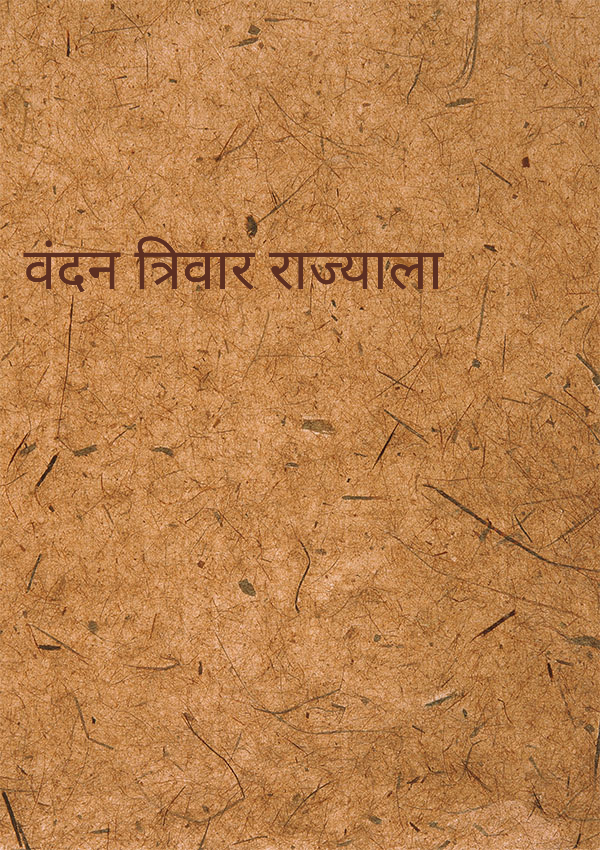 वंदन त्रिवार राज्याला